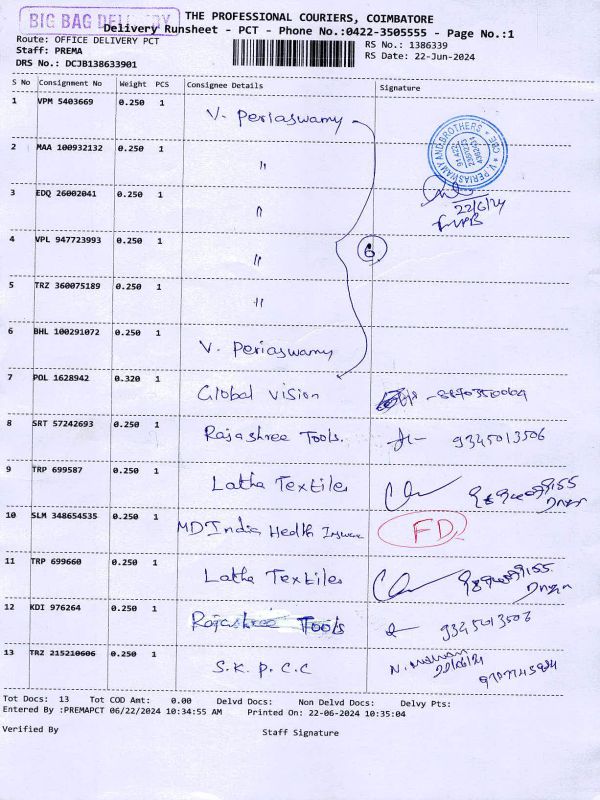 BIG BAG DELIVERY
THE PROFESSIONAL COURIERS, COIMBATORE
Delivery Runsheet - PCT - Phone No.:0422-3505555 - Page No.:1
Route: OFFICE DELIVERY PCT
RS No.: 1386339
Staff: PREMA
RS Date: 22-Jun-2024
DRS No.: DCJB138633901
S No Consignment No Weight PCS Consignee Details Signature
1 VPM 5403669 0.250 1 V. Periaswamy
V PERIASWAMY AND BROTHERS * CBE *
2 MAA 100932132 0.250 1 "
22/6/24
3 EDQ 26002041 0.250 1 "
4 VPL 947723993 0.250 1 "
6
5 TRZ 360075189 0.250 1 "
6 BHL 100291072 0.250 1 V. Periaswamy
7 POL 1628942 0.320 1 Global Vision
8 SRT 57242693 0.250 1 Rajashree Tools. 9345013506
9 TRP 699587 0.250 1 Latha Textiles
10 SLM 348654535 0.250 1 MDIndia Health FD
11 TRP 699660 0.250 1 Latha Textiles
12 KDI 976264 0.250 1 Rajashree Tools 9345013506
13 TRZ 215210606 0.250 1 S.K.P.C.C
Tot Docs: 13 Tot COD Amt: 0.00 Delvd Docs: Non Delvd Docs: Delvy Pts:
Entered By :PREMAPCT 06/22/2024 10:34:55 AM Printed On: 22-06-2024 10:35:04
Verified By Staff Signature